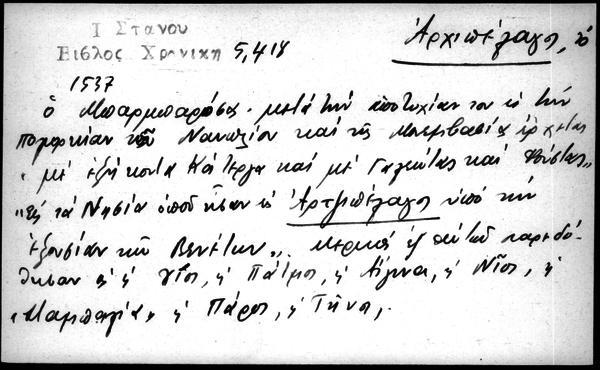 Ι ΣΤΑΝΟΥ
Βιβλος Χρονικη 5,418
Ἀρχιπέλαγος, τὸ
1537
ὁ Μπαρμπαρόσας μετὰ τὴν ἀποτυχίαν του εἰς τὴν
πολιορκίαν τοῦ Ναυπλίου καὶ τῆς Μονεμβασίας ἔρχεται
"μὲ ἑξήκοντα Κάτεργα καὶ μὲ Γαλιώτας καὶ Φούστας"
"εἰς τὰ Νησία ὁποῦ ἦσαν εἰς Ἀρτζιπέλαγος ὑπὸ τὴν
ἐξουσίαν τῶν Βενέτων". μερικὰ ἐξ αὐτῶν παρεδό-
θησαν ἡ Πάτμος, ἡ Αἴγινα, ἡ Νῖος, ἡ
ἡ Πάρος, ἡ Τῆνος,